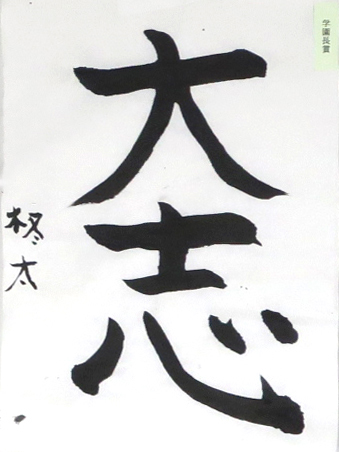 学園長賞
大志
柊太